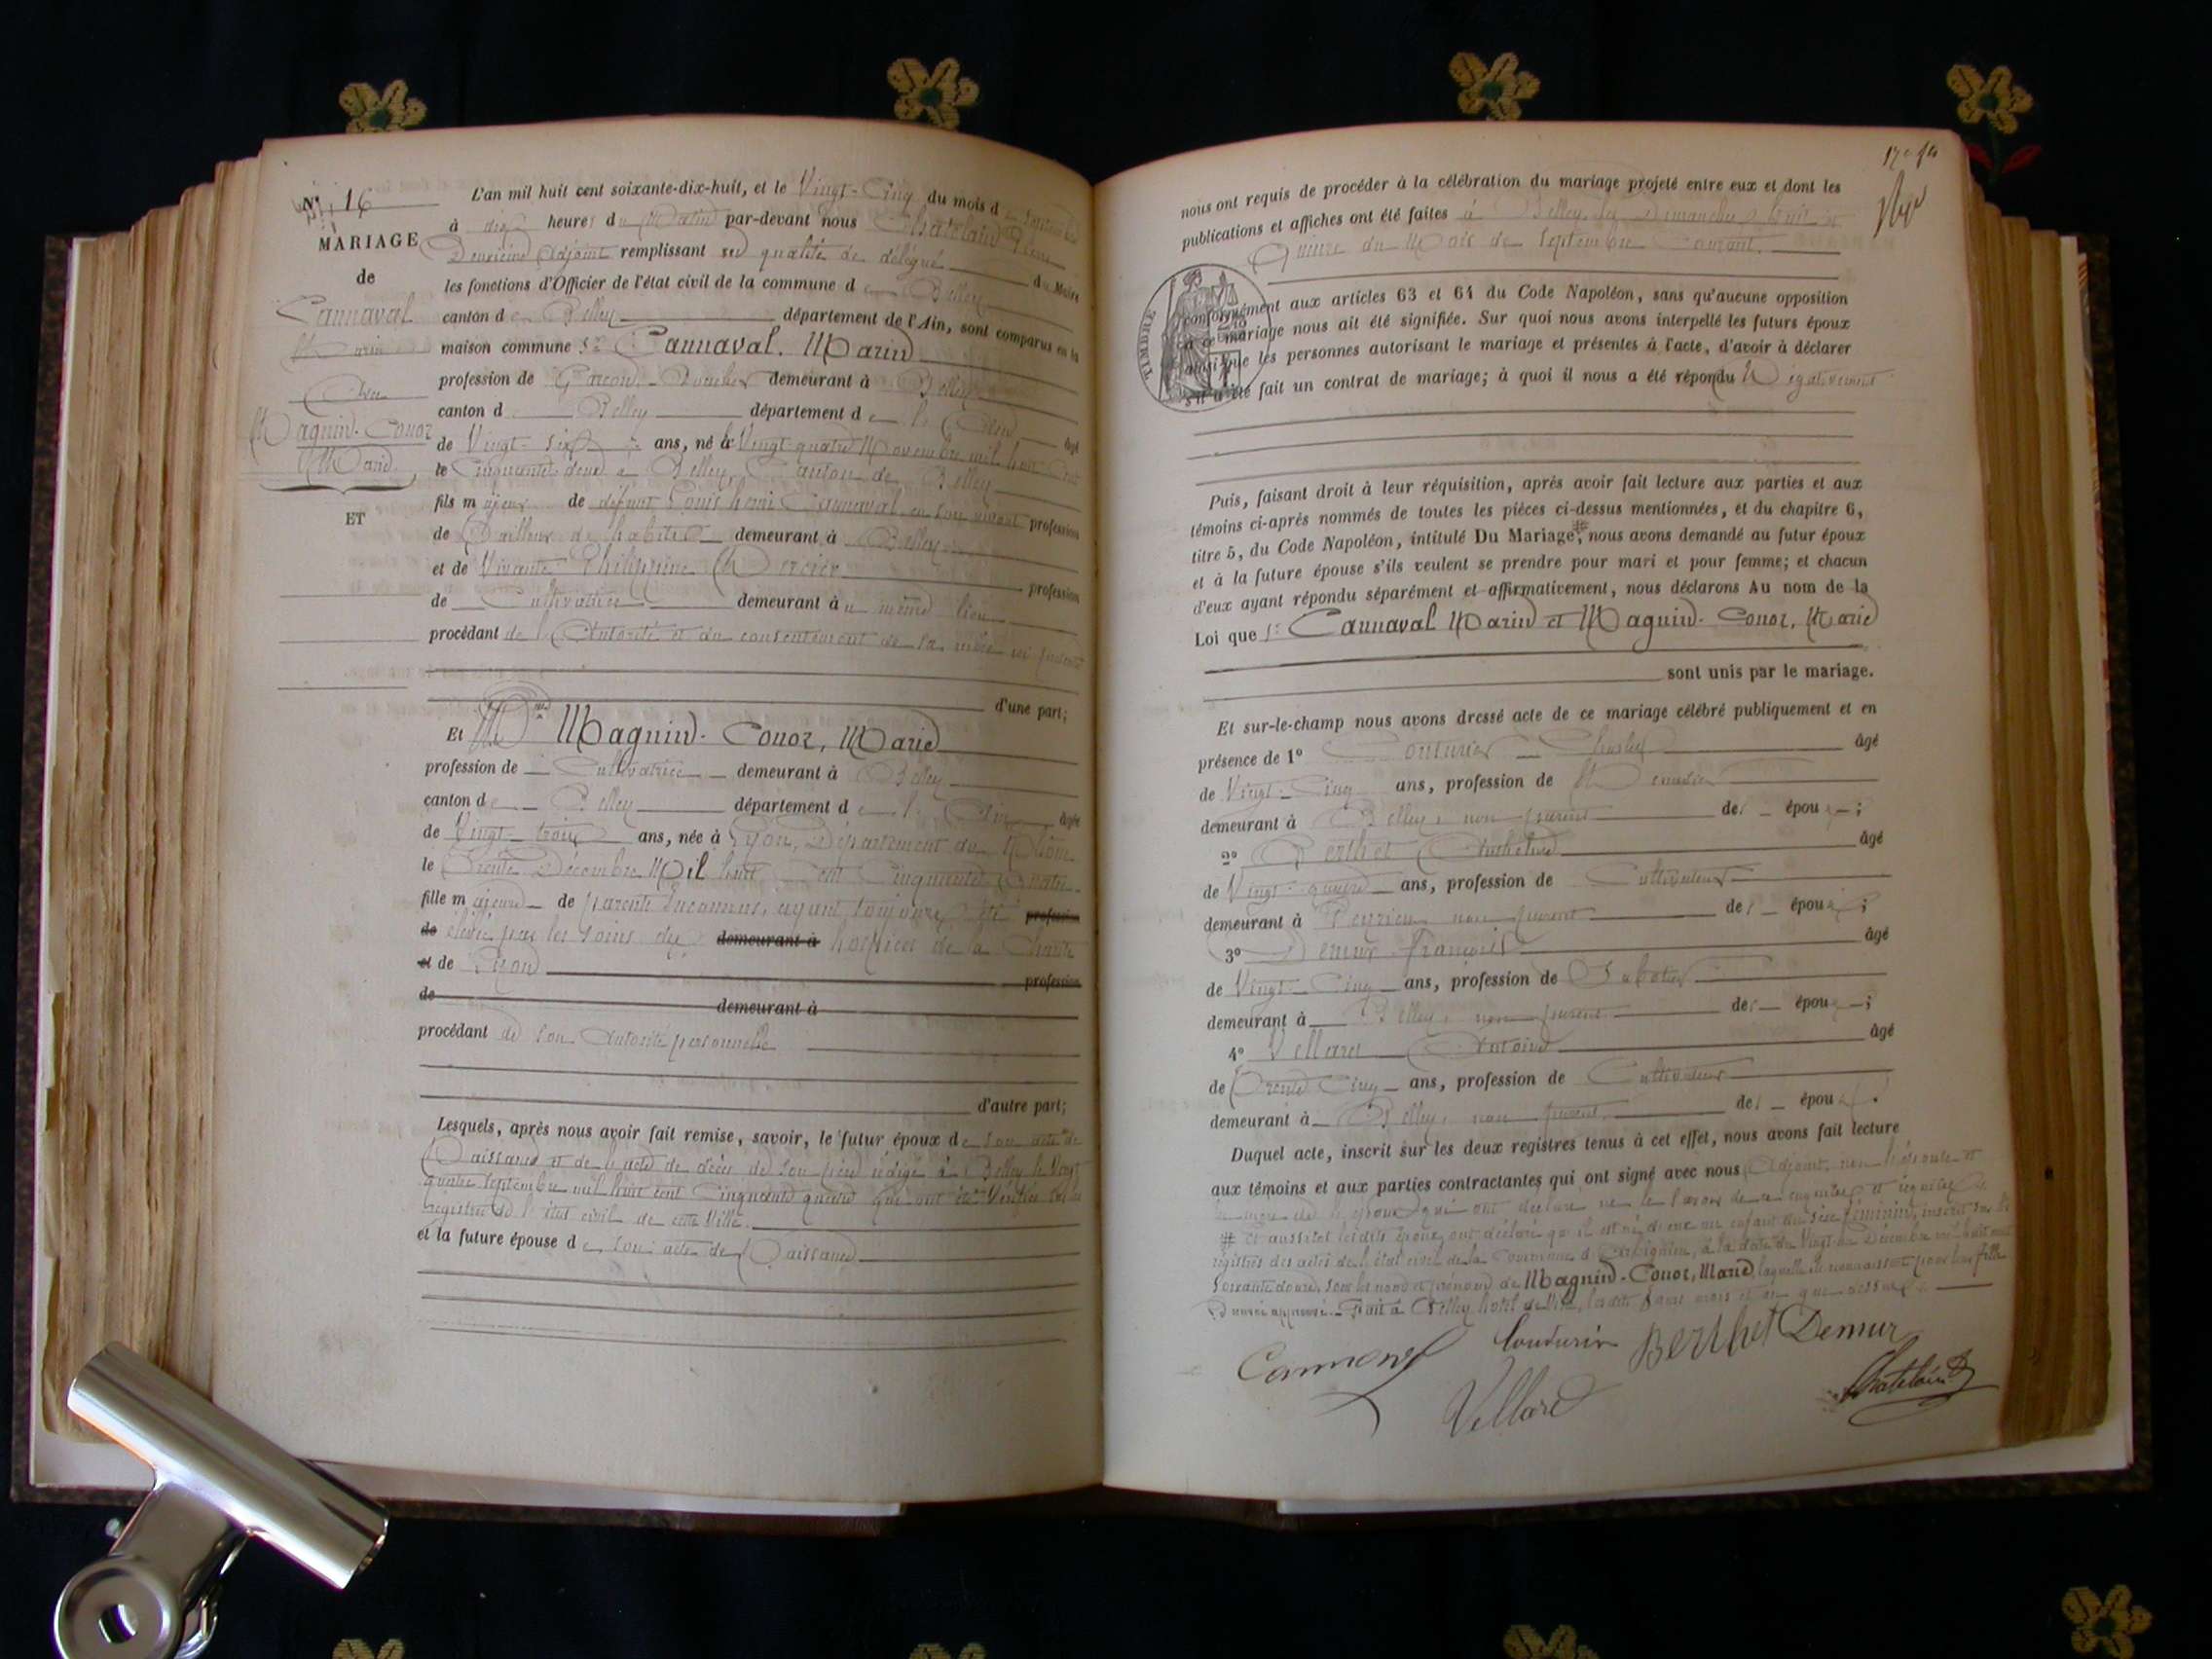 N° 16
MARIAGE
de
Cannaval
Marin
Avec
Magnin-Conor
Marie
ET
L'an mil huit cent soixante-dix-huit, et le Vingt-Cinq du mois de Septembre
à dix heures du Matin par-devant nous Chatelain
Deuxième Adjoint remplissant en qualité de délégué du Maire
les fonctions d'Officier de l'état civil de la commune de Belley
canton de Belley département de l'Ain, sont comparus en la
maison commune Sr Cannaval, Marin
profession de Garçon demeurant à Belley
canton d Belley département de l'Ain âgé
de Vingt-six ans, né à Vingt quatre Novembre mil huit Cent
le Cinquante deux à Belley, Canton de Belley
fils majeur de défunt Louis Cannaval, en son vivant profession
de Tailleur de habits demeurant à Belley
et de Vivante Philippine Mercier profession
de Cultivatrice demeurant au même lieu
procédant de l'Autorité et du consentement de sa mère ici présente
d'une part;
Et Dlle Magnin-Conor, Marie
profession de Cultivatrice demeurant à Belley
canton de Belley département de l'Ain âgée
de Vingt-trois ans, née à Lyon, Département du Rhône
le Trente Décembre Mil huit Cent Cinquante Quatre
fille majeure de parents Inconnus, ayant toujours été profession
de élevée par les soins des demeurant à hospices de la Charité
et de Lyon profession
de demeurant à
procédant de son Autorité personnelle
d'autre part;
Lesquels, après nous avoir fait remise, savoir, le futur époux de son acte de
Naissance et de l'acte de décès de son père rédigé à Belley le Vingt
quatre Septembre mil huit cent Cinquante quatre que ont été Vérifiés sur les
registres de l'état civil de cette Ville.
et la future épouse de son acte de Naissance
nous ont requis de procéder à la célébration du mariage projeté entre eux et dont les
publications et affiches ont été faites à Belley, les Dimanches huit et
Quinze du Mois de Septembre Courant.
TIMBRE
conformément aux articles 63 et 64 du Code Napoléon, sans qu'aucune opposition
à ce mariage nous ait été signifiée. Sur quoi nous avons interpellé les futurs époux
ainsi que les personnes autorisant le mariage et présentes à l'acte, d'avoir à déclarer
s'il a été fait un contrat de mariage; à quoi il nous a été répondu Négativement
Puis, faisant droit à leur réquisition, après avoir fait lecture aux parties et aux
témoins ci-après nommés de toutes les pièces ci-dessus mentionnées, et du chapitre 6,
titre 5, du Code Napoléon, intitulé Du Mariage, # nous avons demandé au futur époux
et à la future épouse s'ils veulent se prendre pour mari et pour femme; et chacun
d'eux ayant répondu séparément et affirmativement, nous déclarons Au nom de la
Loi que Sr Cannaval Marin et Magnin-Conor, Marie
sont unis par le mariage.
Et sur-le-champ nous avons dressé acte de ce mariage célébré publiquement et en
présence de 1° Couturier Charles âgé
de Vingt-Cinq ans, profession de Menuisier
demeurant à Belley, non parent des époux;
2° Berthet Anthelme âgé
de Vingt-quatre ans, profession de Cultivateur
demeurant à Peyrieu non parent des époux;
3° Demur François âgé
de Vingt-Cinq ans, profession de Sabotier
demeurant à Belley, non parent des époux;
4° Vellaret Antoine âgé
de Trente Cinq ans, profession de Cultivateur
demeurant à Belley, non parent des époux.
Duquel acte, inscrit sur les deux registres tenus à cet effet, nous avons fait lecture
aux témoins et aux parties contractantes qui ont signé avec nous Adjoint, non l'épouse et
la mère de l'époux qui ont déclaré ne le savoir de ce enquises et requises
# Et aussitôt lesdits époux ont déclaré qu'il est né d'eux un enfant du sexe féminin, inscrit sur les
registres des actes de l'état civil de la Commune d , à la date du Vingt Décembre mil huit cent
Soixante douze, sous les noms et prénoms de Magnin-Conor, Marie, laquelle ils reconnaissent pour leur fille
Renvoi approuvé. Fait à Belley, hôtel de Ville, lesdits jour mois et an que dessus
Couturier Berthet Demur
Chatelain